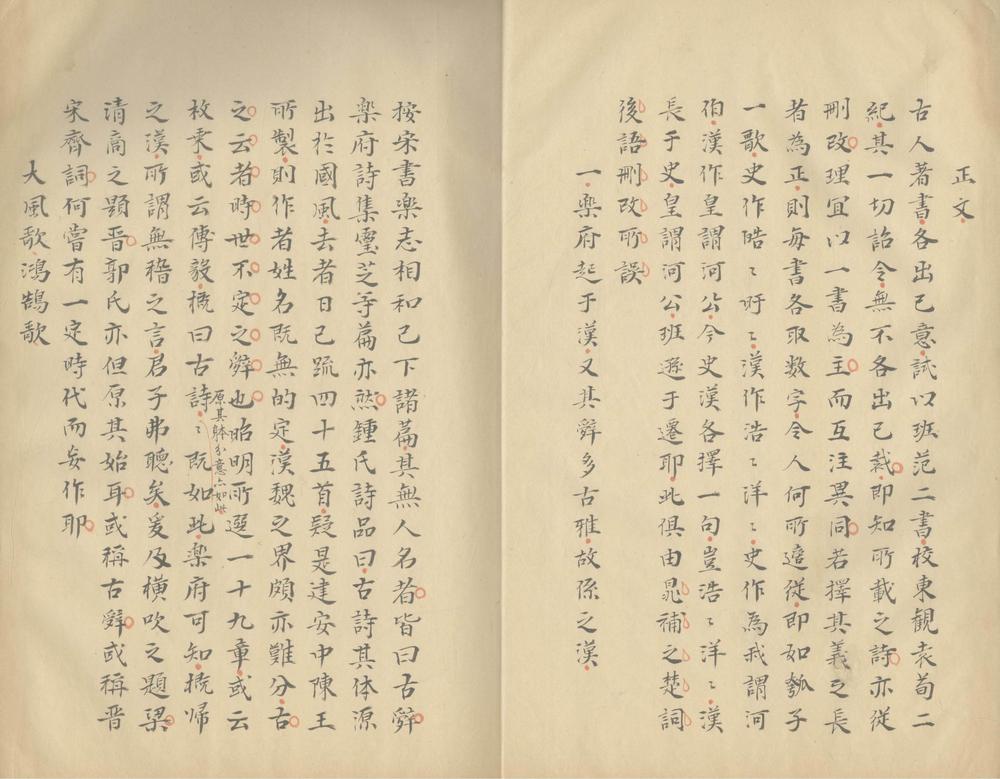 正文
古人著書各出己意試以班范二書校東観袁荀二
紀其一切詔令無不各出己裁即知所載之詩亦從
刪改理冝以一書為主而互注異同若擇其義之長
者為正則每書各取数字令人何所適従即如瓠子
一歌史作晧〻旰〻漢作浩〻洋〻史作為我謂河
伯漢作皇謂河公今史漢各擇一句豈浩〻洋〻漢
長于史皇謂河公班遜于遷耶此俱由晁補之楚詞
後語刪改所誤
一樂府起于漢又其辭多古雅故係之漢
按宋書樂志相和已下諸篇其無人名者皆曰古辭
樂府詩集靈芝寺篇亦然鍾氏詩品曰古詩其体源
出於國風去者日已疏四十五首疑是建安中陳王
所製則作者姓名既無的定漢魏之界頗亦難分古
之云者時世不定之辭也昭明所選一十九章或云
原其躰分意亦如此
枚乗或云傅毅概曰古詩〻既如此樂府可知概歸
之漢所謂無稽之言君子弗聽矣爰及橫吹之題梁
清商之題晋郭氏亦但原其始耳或稱古辭或稱晋
宋齊詞何嘗有一定時代而妄作耶
大風歌鴻鵠歌